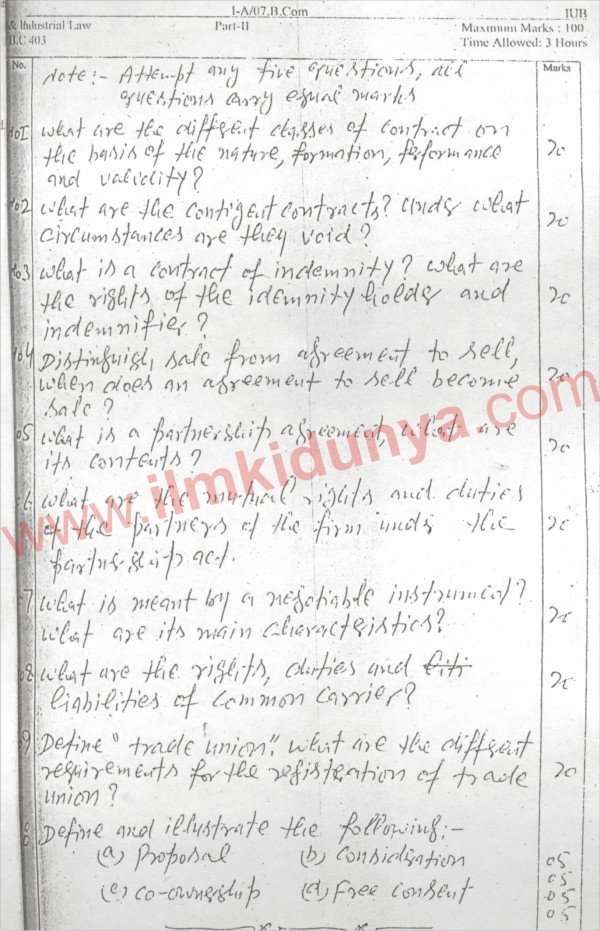 1-A/07,B.Com
IUB
& Industrial Law
Part-II
Maximum Marks : 100
B.C 403
Time Allowed: 3 Hours
No.
Marks
Note:- Attempt any five questions, all
questions carry equal marks
what are the different classes of contract on
the basis of the nature, formation, performance
and validity?
20
02 what are the contigent contracts? Under what
circumstances are they void?
20
03 what is a contract of indemnity? what are
the rights of the idemnity holder and
indemnifier?
20
04 Distinguish sale from agreement to sell,
when does an agreement to sell become
sale?
20
05 what is a partnership agreement, what are
its contents?
20
6 what are the mutual rights and duties
of the partners of the firm under the
partnership act.
20
7 what is meant by a negotiable instrument?
what are its main characteristics?
20
08 what are the rights, duties and
liabilities of common carrier?
20
9 Define "trade union". what are the different
requirements for the registration of trade
union?
20
Define and illustrate the following:-
(a) Proposal (b) consideration
05
05
(c) co-ownership (d) Free consent
05
05
www.ilmkidunya.com